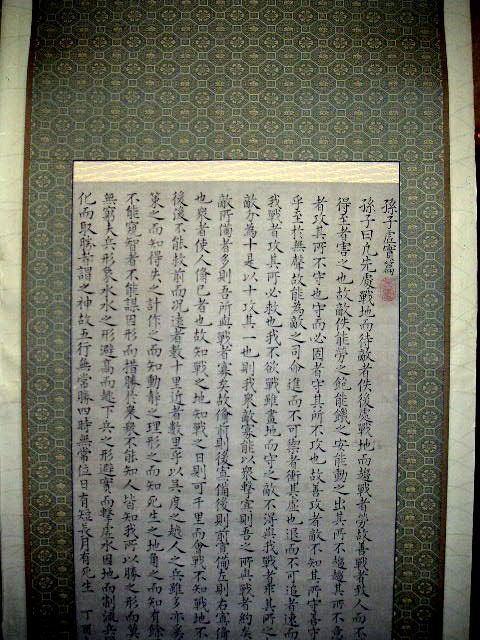 孫子虛實篇
孫子曰凡先處戰地而待敵者佚後處戰地而趨戰者勞故善戰者致人而不
得至者害之也故敵佚能勞之飽能饑之安能動之出其所不趨趨其所不意
者攻其所不守也守而必固者守其所不攻也故善攻者敵不知其所守善守
乎至於無聲故能為敵之司命進而不可禦者衝其虛也退而不可追者速而
我戰者攻其所必救也我不欲戰雖畫地而守之敵不得與我戰者乖其所之
敵分為十是以十攻其一也則我衆敵寡能以衆擊寡則吾之所與戰者約矣
敵所備者多則吾所與戰者寡矣故備前則後寡備後則前寡備左則右寡備
也衆者使人備己者也故知戰之地知戰之日則可千里而會戰不知戰地不
後後不能救前而況遠者數十里近者數里乎以吳度之越人之兵雖多亦奚
策之而知得失之計作之而知動靜之理形之而知死生之地角之而知有餘
不能窺智者不能謀因形而措勝於衆衆不能知人皆知我所以勝之形而莫
無窮夫兵形象水水之形避高而趨下兵之形避實而擊虛水因地而制流兵
化而取勝者謂之神故五行無常勝四時無常位日有短長月有死生 丁